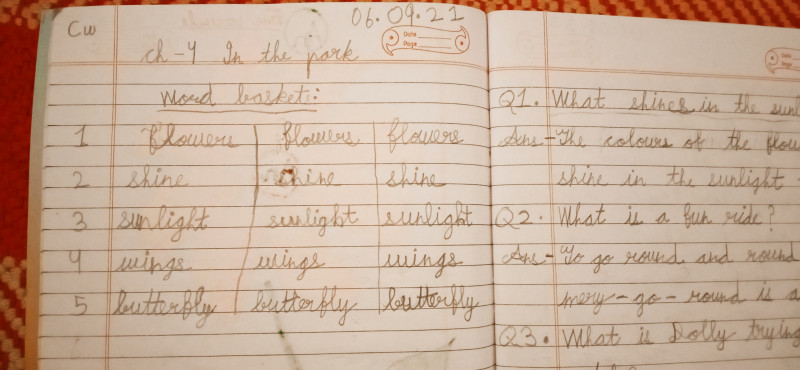 Cw
06.09.21
Date
Page
ch-4 In the park
Word basket:
1 flowers flowers flowers
2 shine shine shine
3 sunlight sunlight sunlight
4 wings wings wings
5 butterfly butterfly butterfly
Q1. What shines in the
Ans-The colours of the
shine in the sunlight
Q2. What is a fun ride?
Ans-To go round and round
mery-go-round is a
Q3. What is Dolly trying